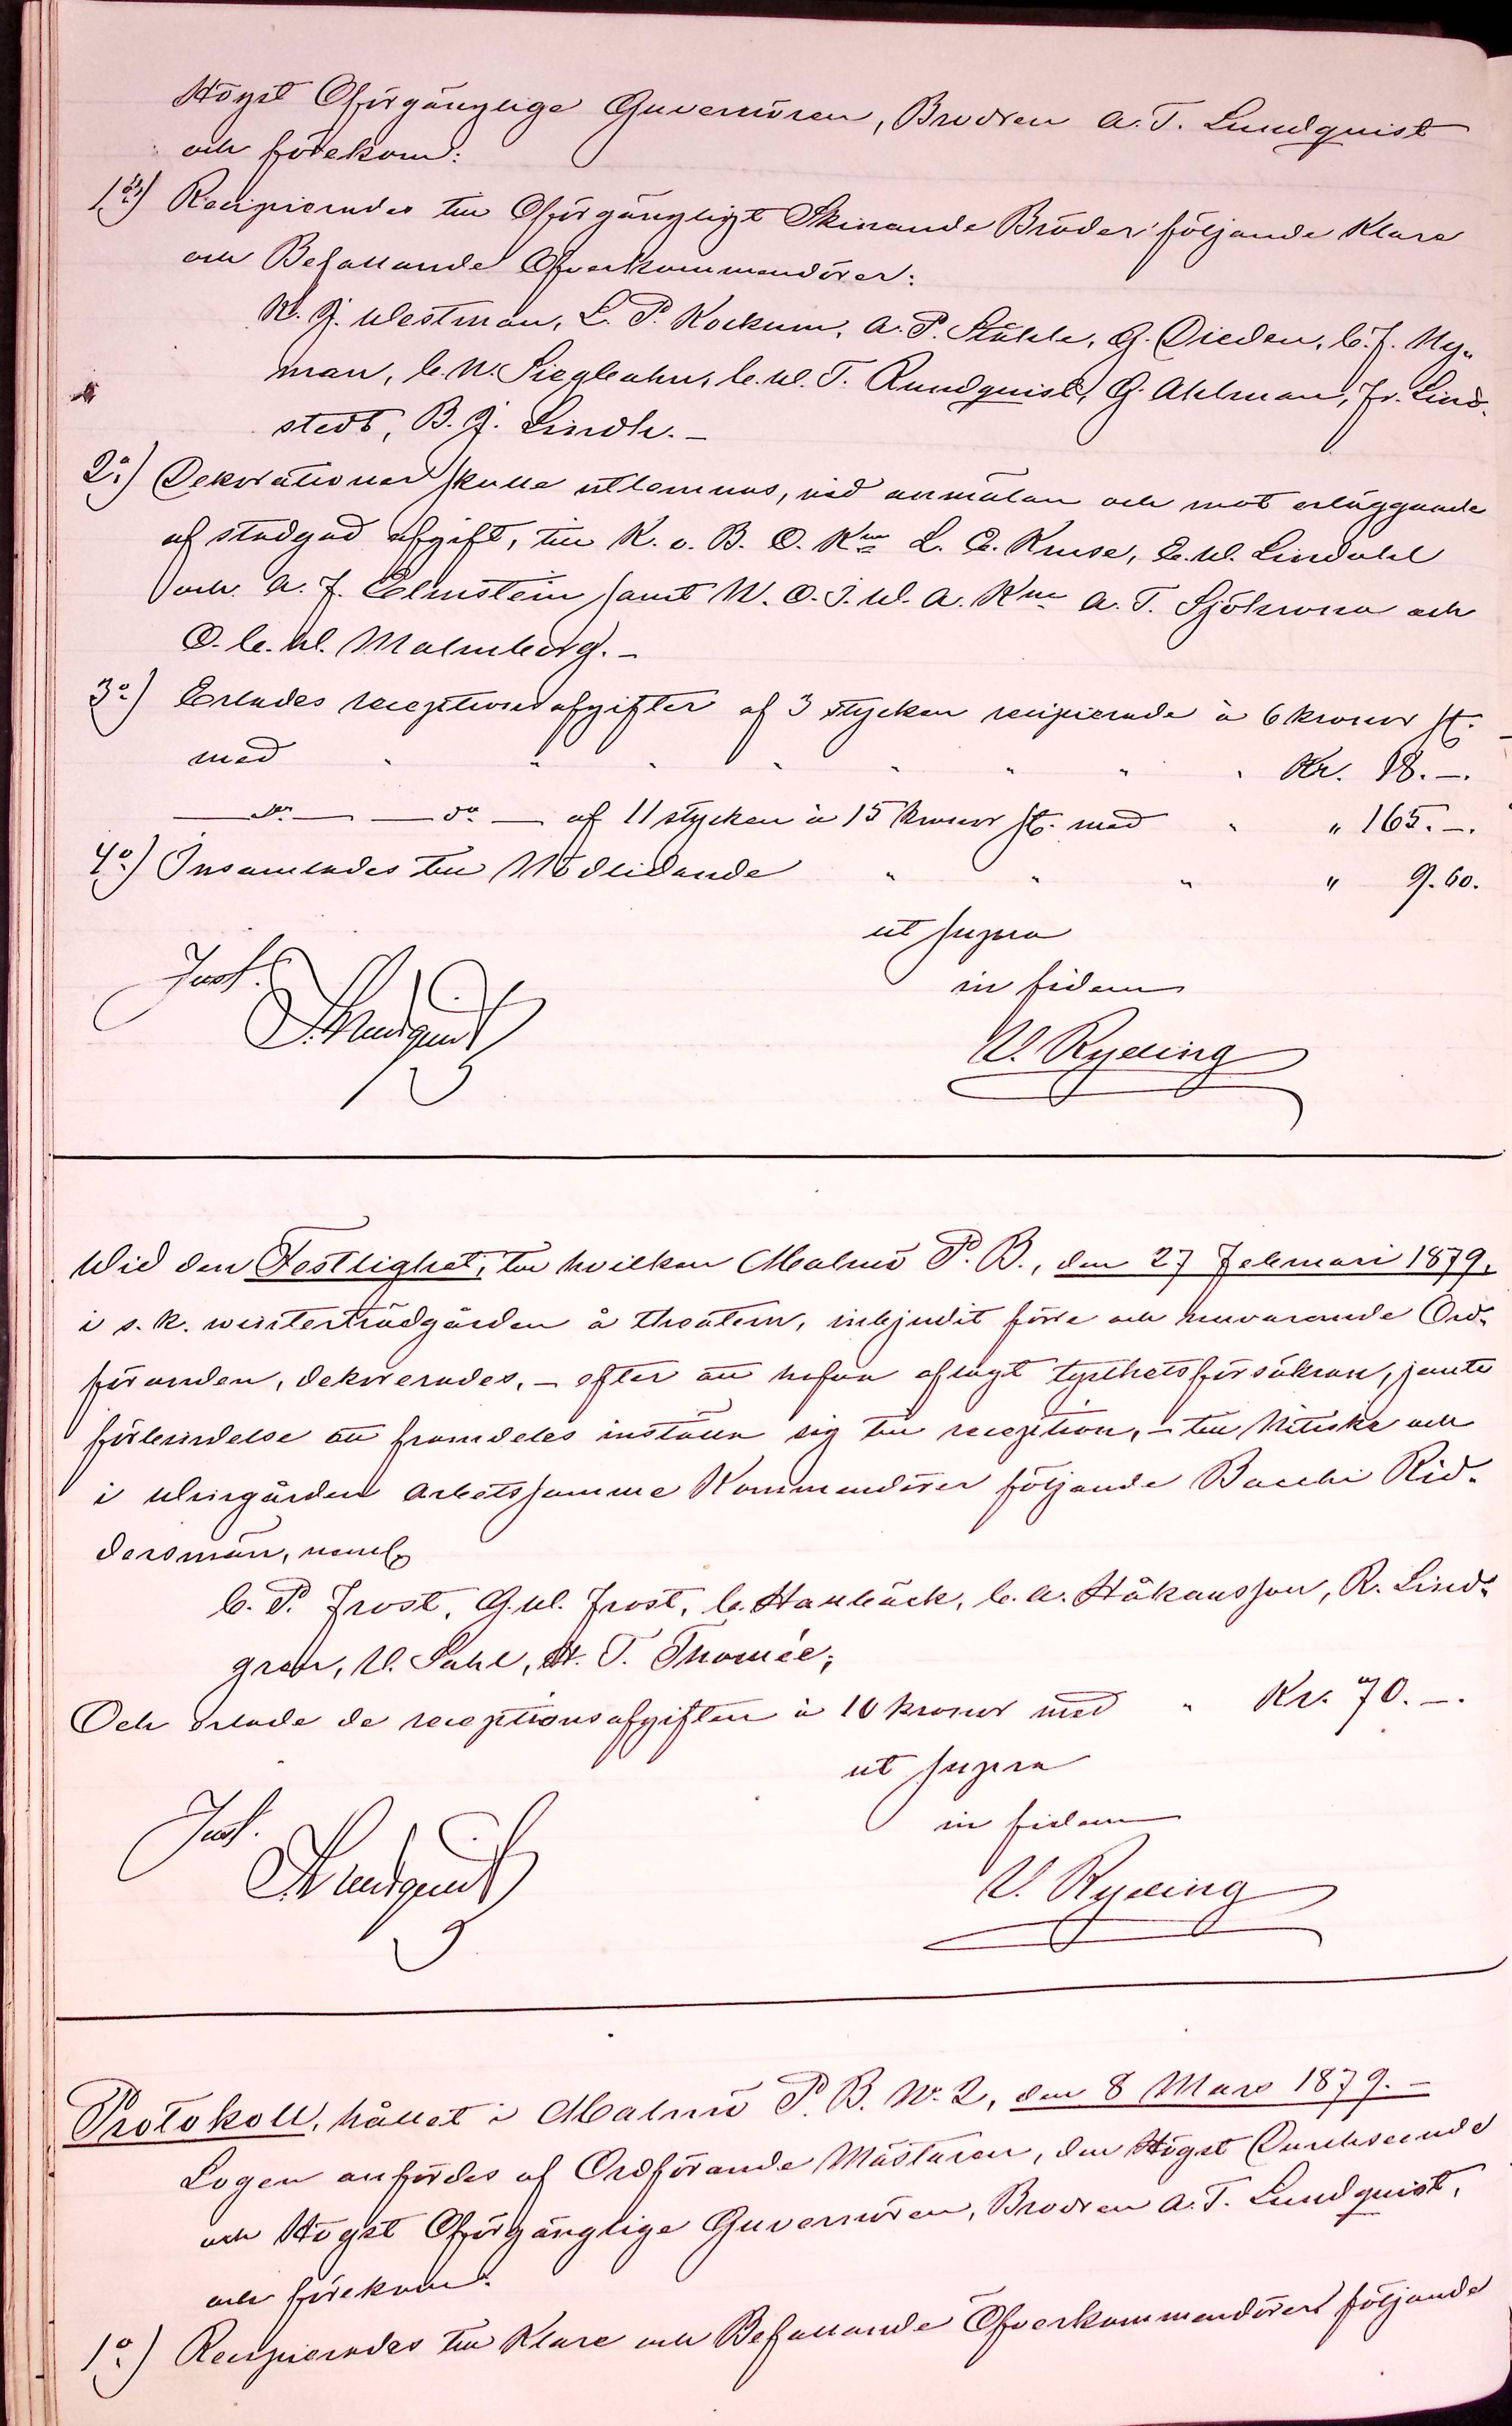 Högst Oförgänglige Guvernören, Brodren A. T. Lundquist
och förekom:
1o) Recipierades till Oförgängligt Skinande Bröder följande Klare
och Befallande Öfverkommendörer:
K. J. Westman, L. P. Kockum, A. P. Ståhle, G. Dieden, C. J. Ny„
man, C. N. Siegbahn, C. W. T. Rundquist, G. Ahlman, Fr. Lind„
stedt, B. J. Lindh. —
2o) Dekorationer skulle utlemnas, vid anmälan och mot erläggande
af stadgad afgift, till K. o. B. Ö. Km L. E. Kruse, E. W. Lindahl
och A. F. Elmstein samt N. O. I. W. A. Km A. T. Sjökrona och
O. C. W. Malmberg. —
3o) Erlades receptionsafgifter af 3 stycken recipierade à 6 kronor st.
med " " " " " " " " Kr. 18. —.
— do — — do — af 11 stycken à 15 kronor st. med " " 165. —.
4o) Insamlades till Nödlidande " " " " 9. 60.
ut supra
Just. in fidem
A. T. Lundquist
V. Ryding
Wid den Festlighet, till hvilken Malmö P. B., den 27 Februari 1879,
i s. k. winterträdgården å theatern, inbjudit förre och nuvarande Ord„
föranden, dekorerades, — efter att hafva aflagt tysthetsförsäkran, jemte
förbindelse att framdeles inställa sig till reception, — till Nitiske och
i Wingården Arbetssamme Kommendörer följande Bacchi Rid„
dersmän, neml.
C. P. Frost, G. W. Frost, C. Hallbäck, C. A. Håkansson, R. Lind„
gren, V. Sahl, H. T. Thomée;
Och erlade de receptionsafgiften à 10 kronor med " Kr. 70. —.
ut supra
Just. in fidem
A. T. Lundquist
V. Ryding
Protokoll, hållet i Malmö P. B. No 2, den 8 Mars 1879. —
Logen anfördes af Ordförande Mästaren, den Högst Durchseende
och Högst Oförgänglige Guvernören, Brodren A. T. Lundquist,
och förekom:
1o) Recipierades till Klare och Befallande Öfverkommendörer följande